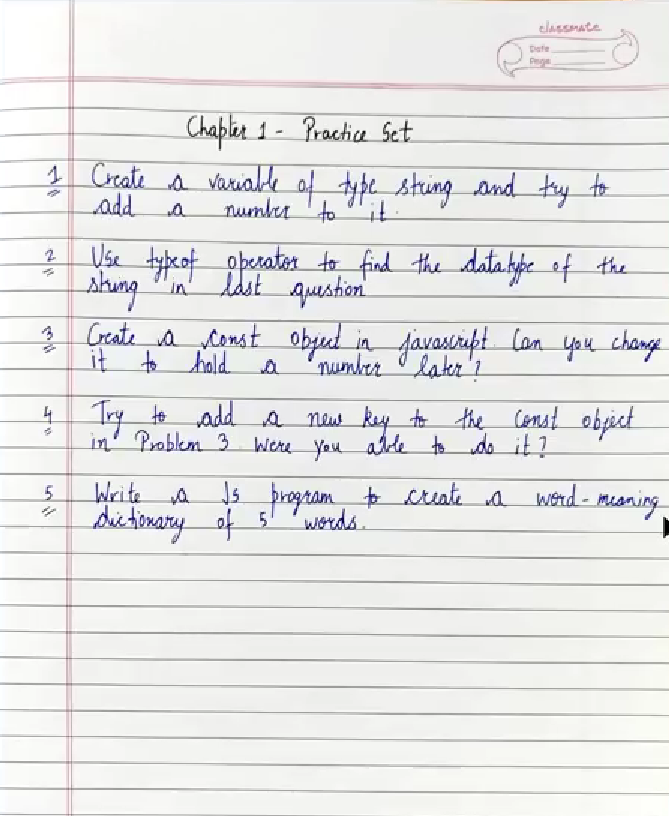 classmate
Date
Page
Chapter 1 - Practice Set
1 Create a variable of type string and try to
add a number to it.
2 Use typeof operator to find the datatype of the
string in last question
3 Create a const object in javascript. Can you change
it to hold a number later?
4 Try to add a new key to the const object
in Problem 3. Were you able to do it?
5 Write a JS program to create a word-meaning
dictionary of 5 words.